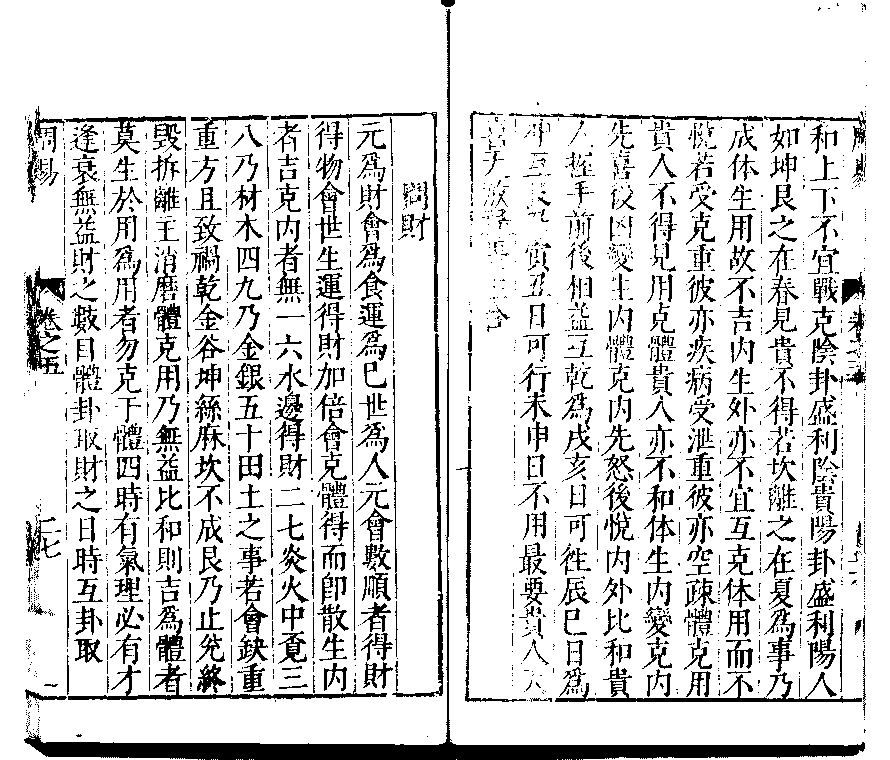 和上下不宜戰克陰卦盛利陰貴陽卦盛利陽人
如坤艮之在春見貴不得若坎離之在夏爲事乃
成体生用故不吉内生外亦不宜互克体用而不
悅若受克重彼亦疾病受泄重彼亦空疎體克用
貴人不得見用克體貴人亦不和体生内變克内
先喜後凶變生内體克内先怒後悅内外比和貴
人握手前後相益互乾爲戌亥日可徃辰巳日爲
冲互艮 寅丑日可行未申日不用最要貴人
問財
元爲財會爲食運爲巳世爲人元會數順者得財
得物會世生運得財加倍會克體得而卽散生内
者吉克内者無一六水邊得財二七炎火中覔三
八乃材木四九乃金銀五十田土之事若會缺重
重方且致禍乾金谷坤絲麻坎不成艮乃止兊終
毁拆離主消磨體克用乃無益比和則吉爲體者
莫生於用爲用者勿克于體四時有氣理必有才
逢衰無益財之數目體卦取財之日時互卦取
周易
卷之五
二七